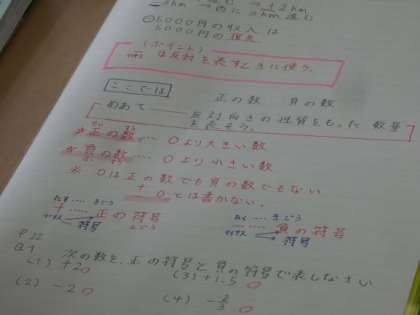 2km → 西に 2km 進む
○5000円の収入 は
5000円の損失
(ポイント)
は反対を表すときに使う。
ここでは
正の数 負の数
めあて
反対向きの性質をもった数量
を表そう。
*正の数… 0より大きい数
*負の数… 0より小さい数
* 0は正の数でも負の数でもない
0とは書かない。
+ …… きごう
正の符号
符号
- …… きごう
負の符号
符号
P.22
Q1 次の数を、正の符号と負の符号で表しなさい
(1) +20
(3) +1.5
(2) -20
(4) -2/3